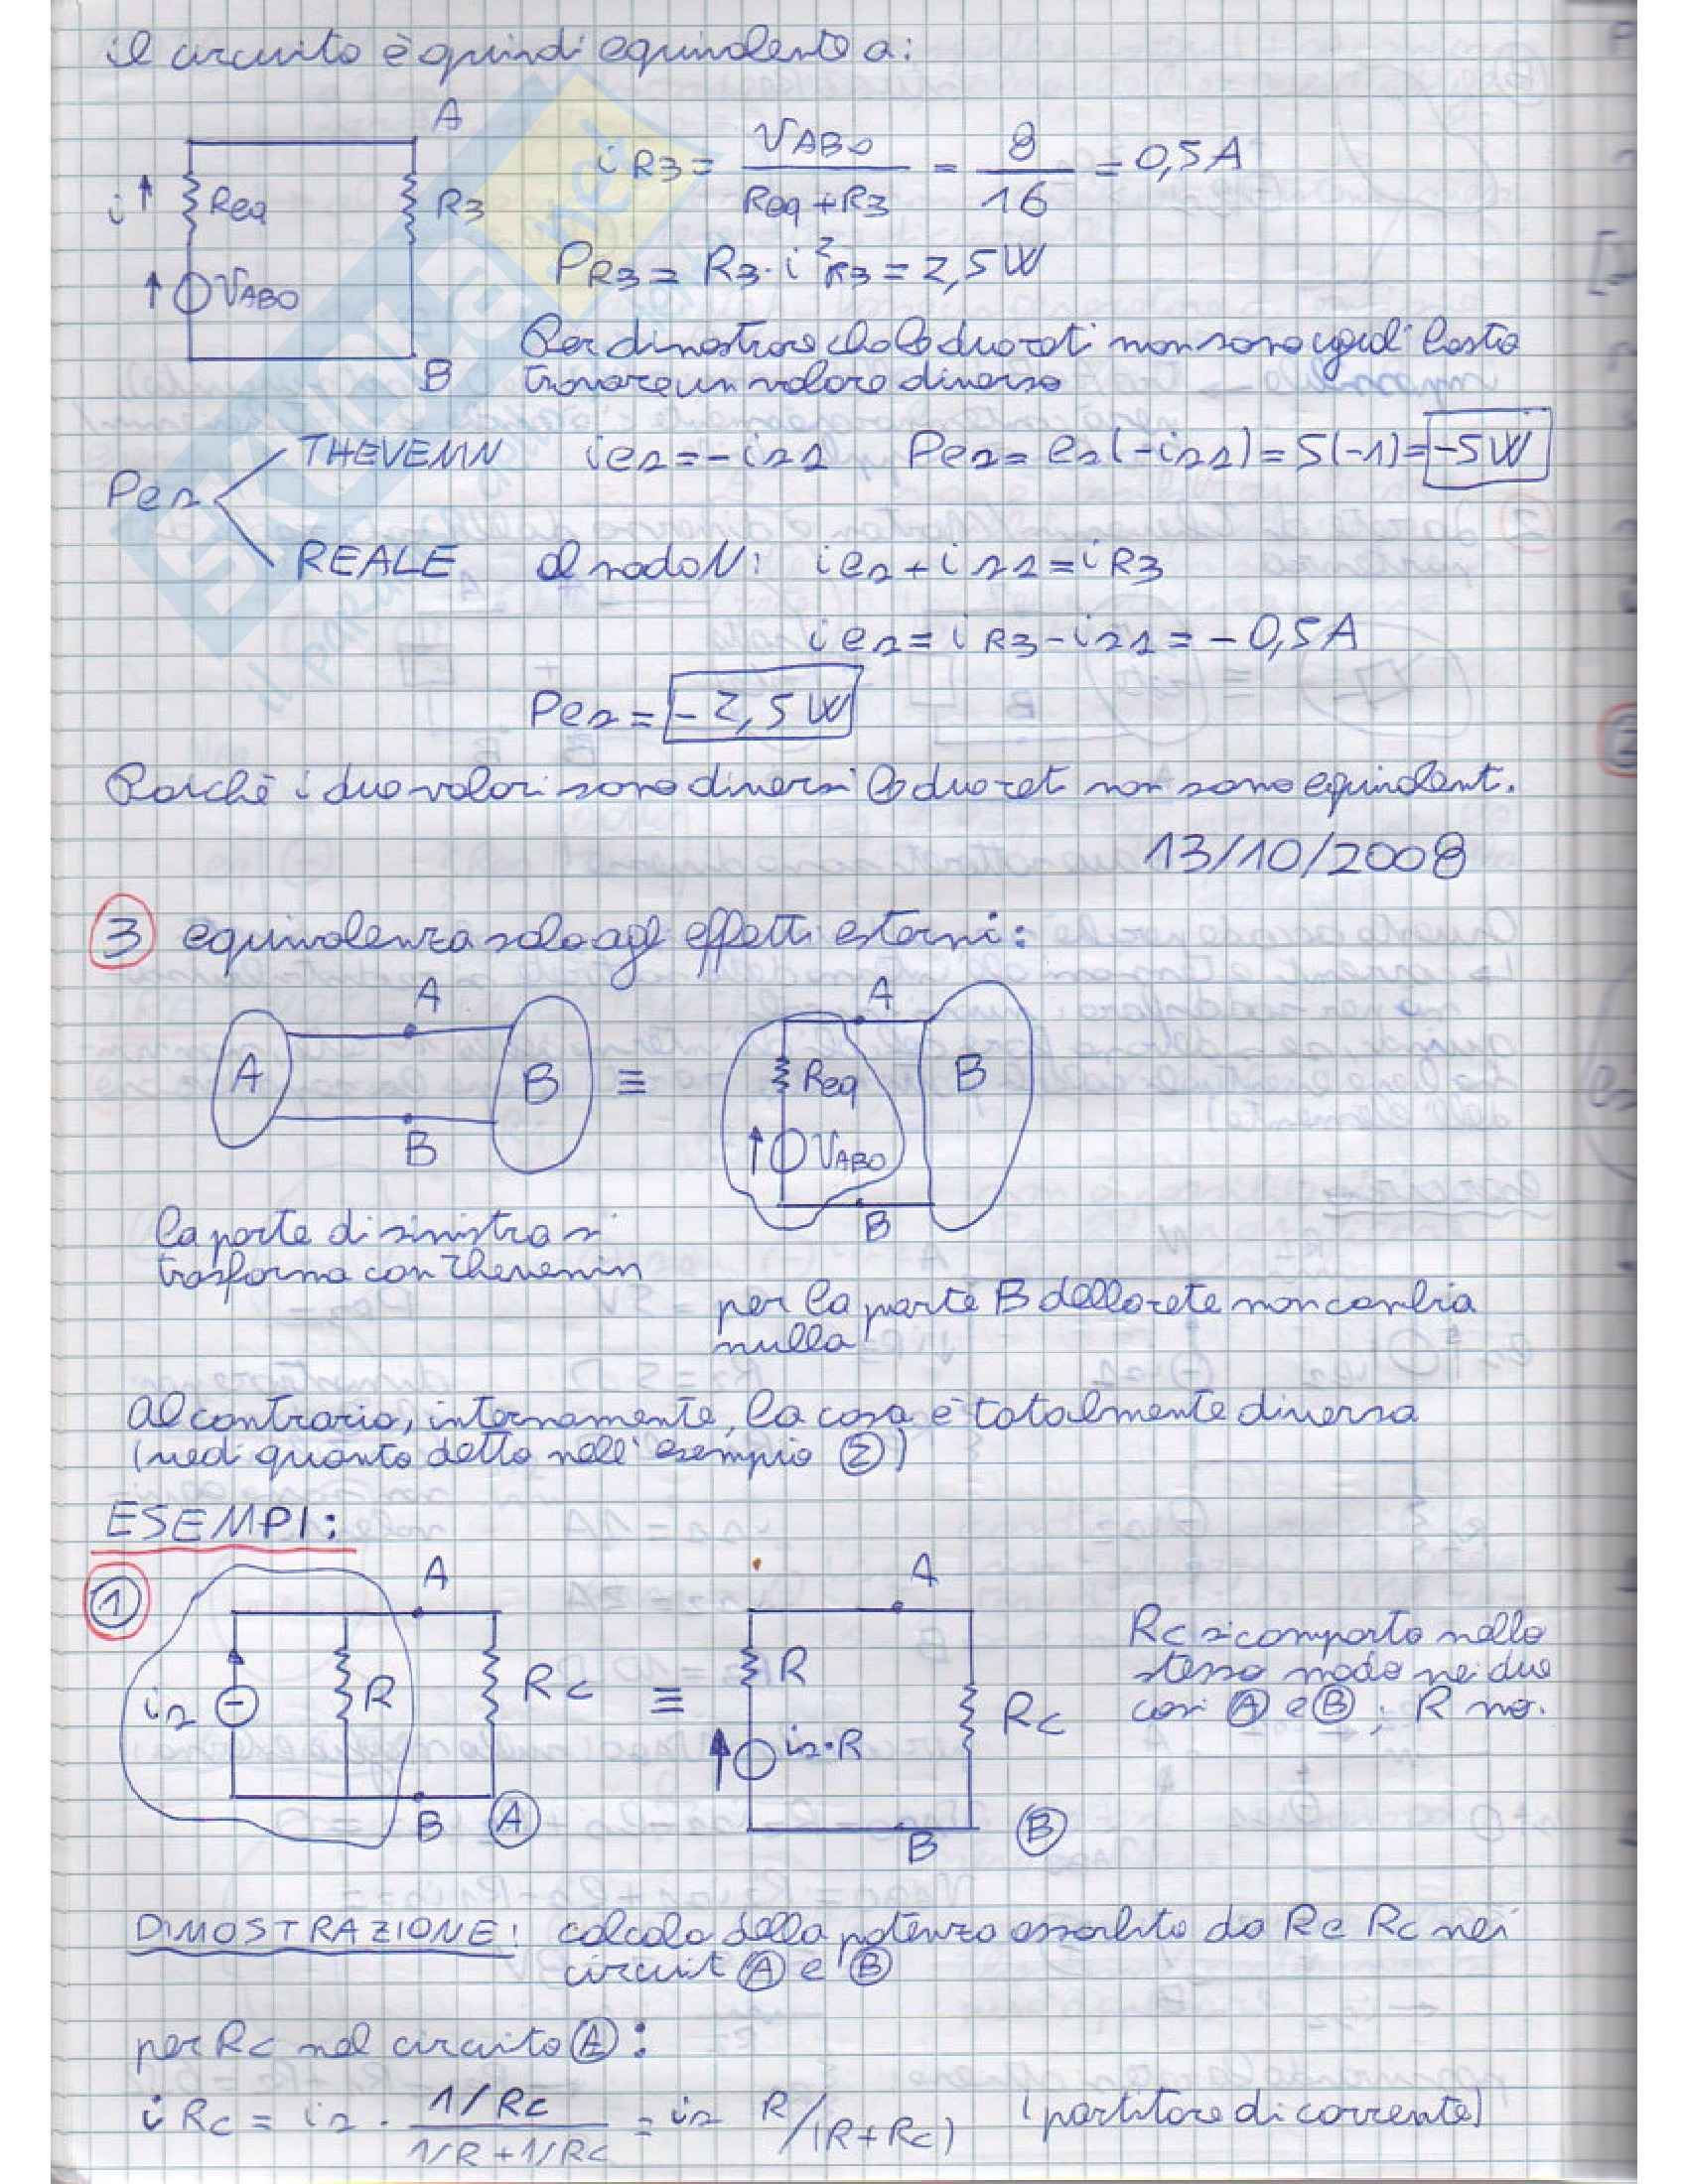 il circuito è quindi equivalente a:
A
i Req R3
VABO
B
iR3 = VABO / (Req + R3) = 8 / 16 = 0,5 A
PR3 = R3 · i²R3 = 2,5 W
Per dimostrare che le due reti non sono uguali basta
trovare un valore diverso
Pes
THEVENIN ies = -iss Pes = es(-iss) = 5(-1) = -5W
REALE al nodo N: ies + iss = iR3
ies = iR3 - iss = -0,5 A
Pes = -2,5 W
Poichè i due valori sono diversi le due reti non sono equivalenti.
13/10/2008
3 equivalenza solo agli effetti esterni:
A A
A B ≡ Req B
B VABO
B
la parte di sinistra si
trasforma con Thevenin
per la parte B della rete non cambia
nulla
Al contrario, internamente, la cosa è totalmente diversa
(vedi quanto detto nell'esempio 2)
ESEMPI:
1
A A
is R Rc ≡ R is·R Rc
B A B B
Rc si comporta nello
stesso modo nei due
casi A e B ; R no.
DIMOSTRAZIONE: calcolo della potenza assorbita da R e Rc nei
circuiti A e B
per Rc nel circuito A:
iRc = is · (1/Rc) / (1/R + 1/Rc) = is R/(R+Rc) (partitore di corrente)
SKUOLA.net
il para